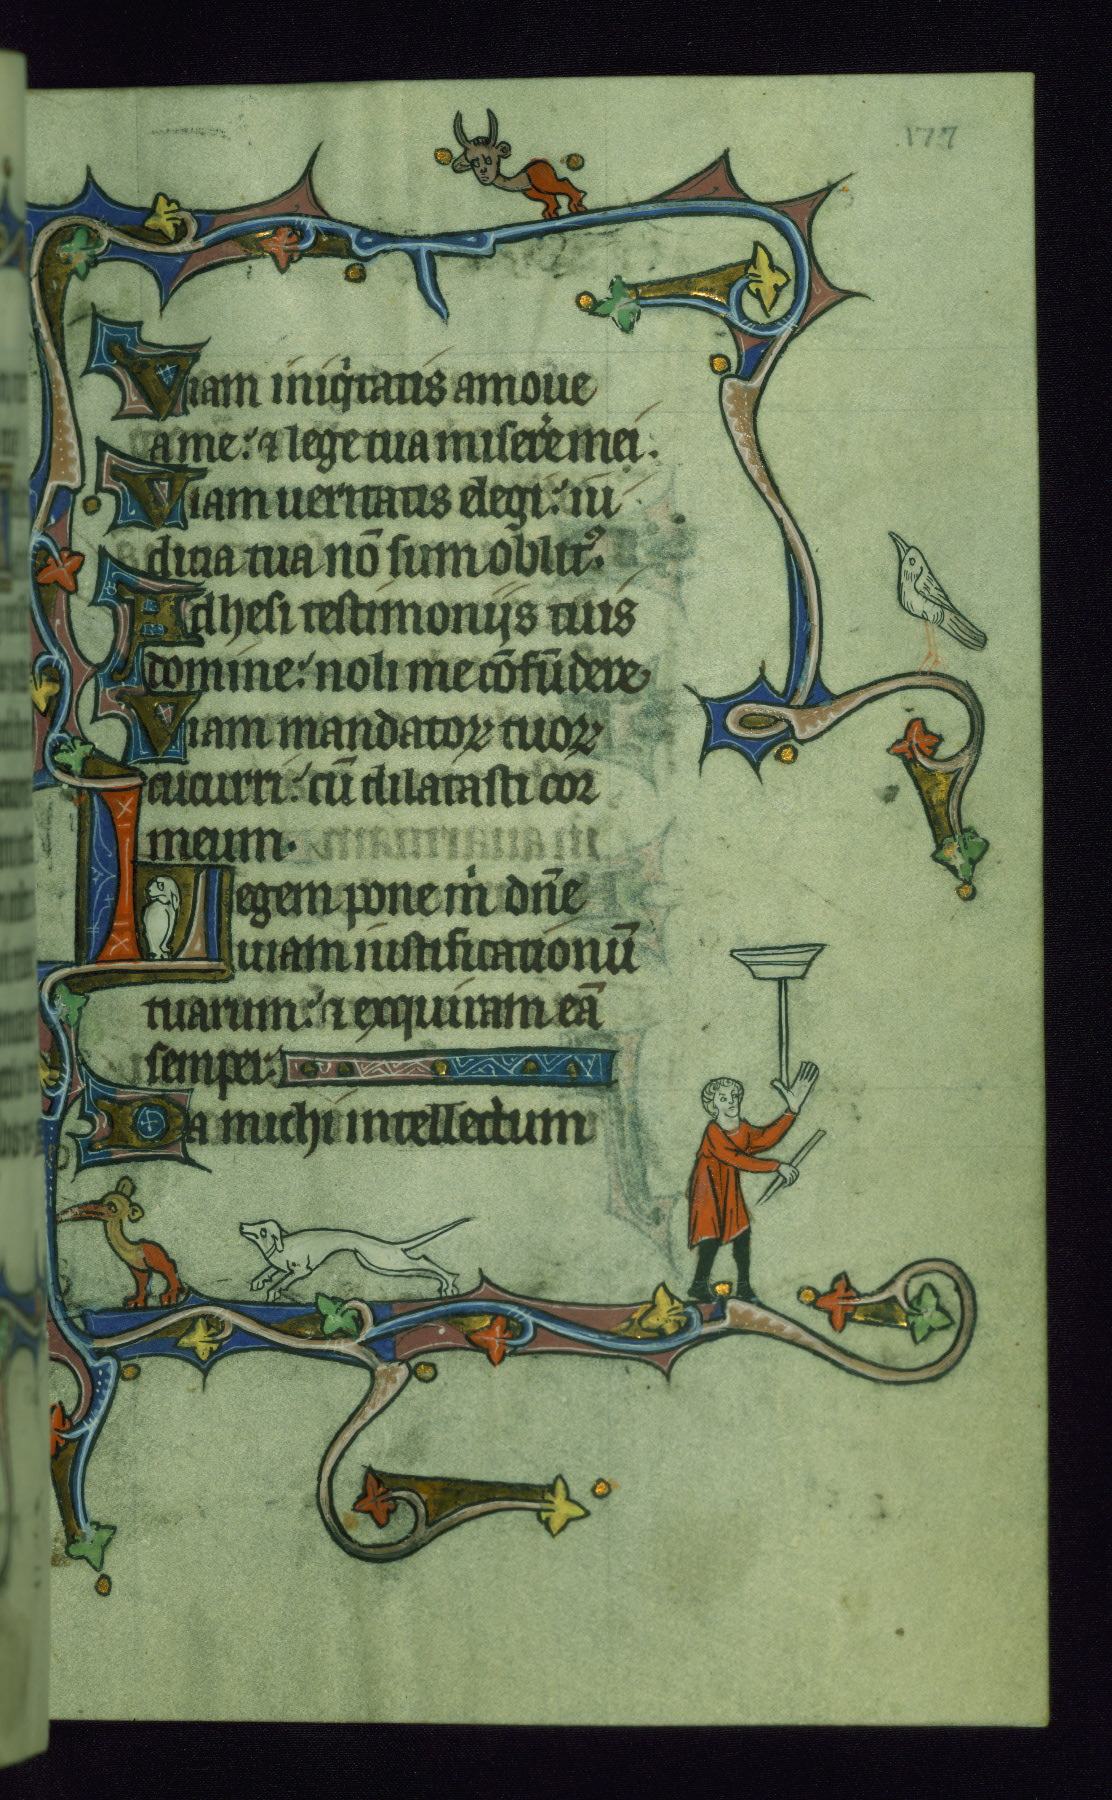 177
Viam iniq̇tatis amoue
a me: ⁊ lege tua miserė mei.
Viam ueritatis elegi: iu
dicia tua nō sum oblitꝰ.
Adhesi testimonijs tuis
domine: noli me cōfūdere
Viam mandatoꝝ tuoꝝ
cucurri: cū dilatasti cor
meum.
Legem pone ṁ dn̄e
uiam iustificationū
tuarum: ⁊ exquiram eā
semper:
Da michi intellectum